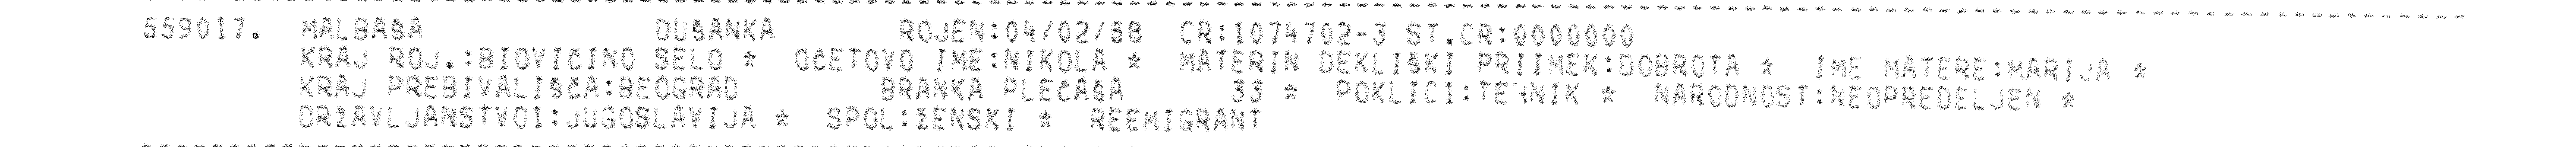 559017. MALBAŠA DUŠANKA ROJEN:04/02/58 CR:1074702-3 ST.CR:0000000
KRAJ ROJ.:BIOVIČINO SELO * OČETOVO IME:NIKOLA * MATERIN DEKLIŠKI PRIIMEK:DOBROTA * IME MATERE:MARIJA *
KRAJ PREBIVALIŠČA:BEOGRAD BRANKA PLEČAŠA 33 * POKLICI:TEHNIK * NARODNOST:NEOPREDELJEN *
DRŽAVLJANSTVOI:JUGOSLAVIJA * SPOL:ŽENSKI * REEMIGRANT